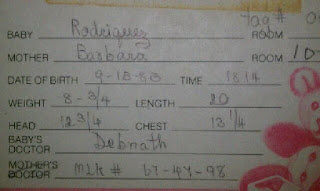 Tag # 0
BABY Rodriguez ROOM
MOTHER Barbara ROOM 10-
DATE OF BIRTH 9-13-83 TIME 1814
WEIGHT 8-3/4 LENGTH 20
HEAD 12 3/4 CHEST 13 1/4
BABY'S
DOCTOR Debnath
MOTHER'S
DOCTOR MLK # 67-47-98